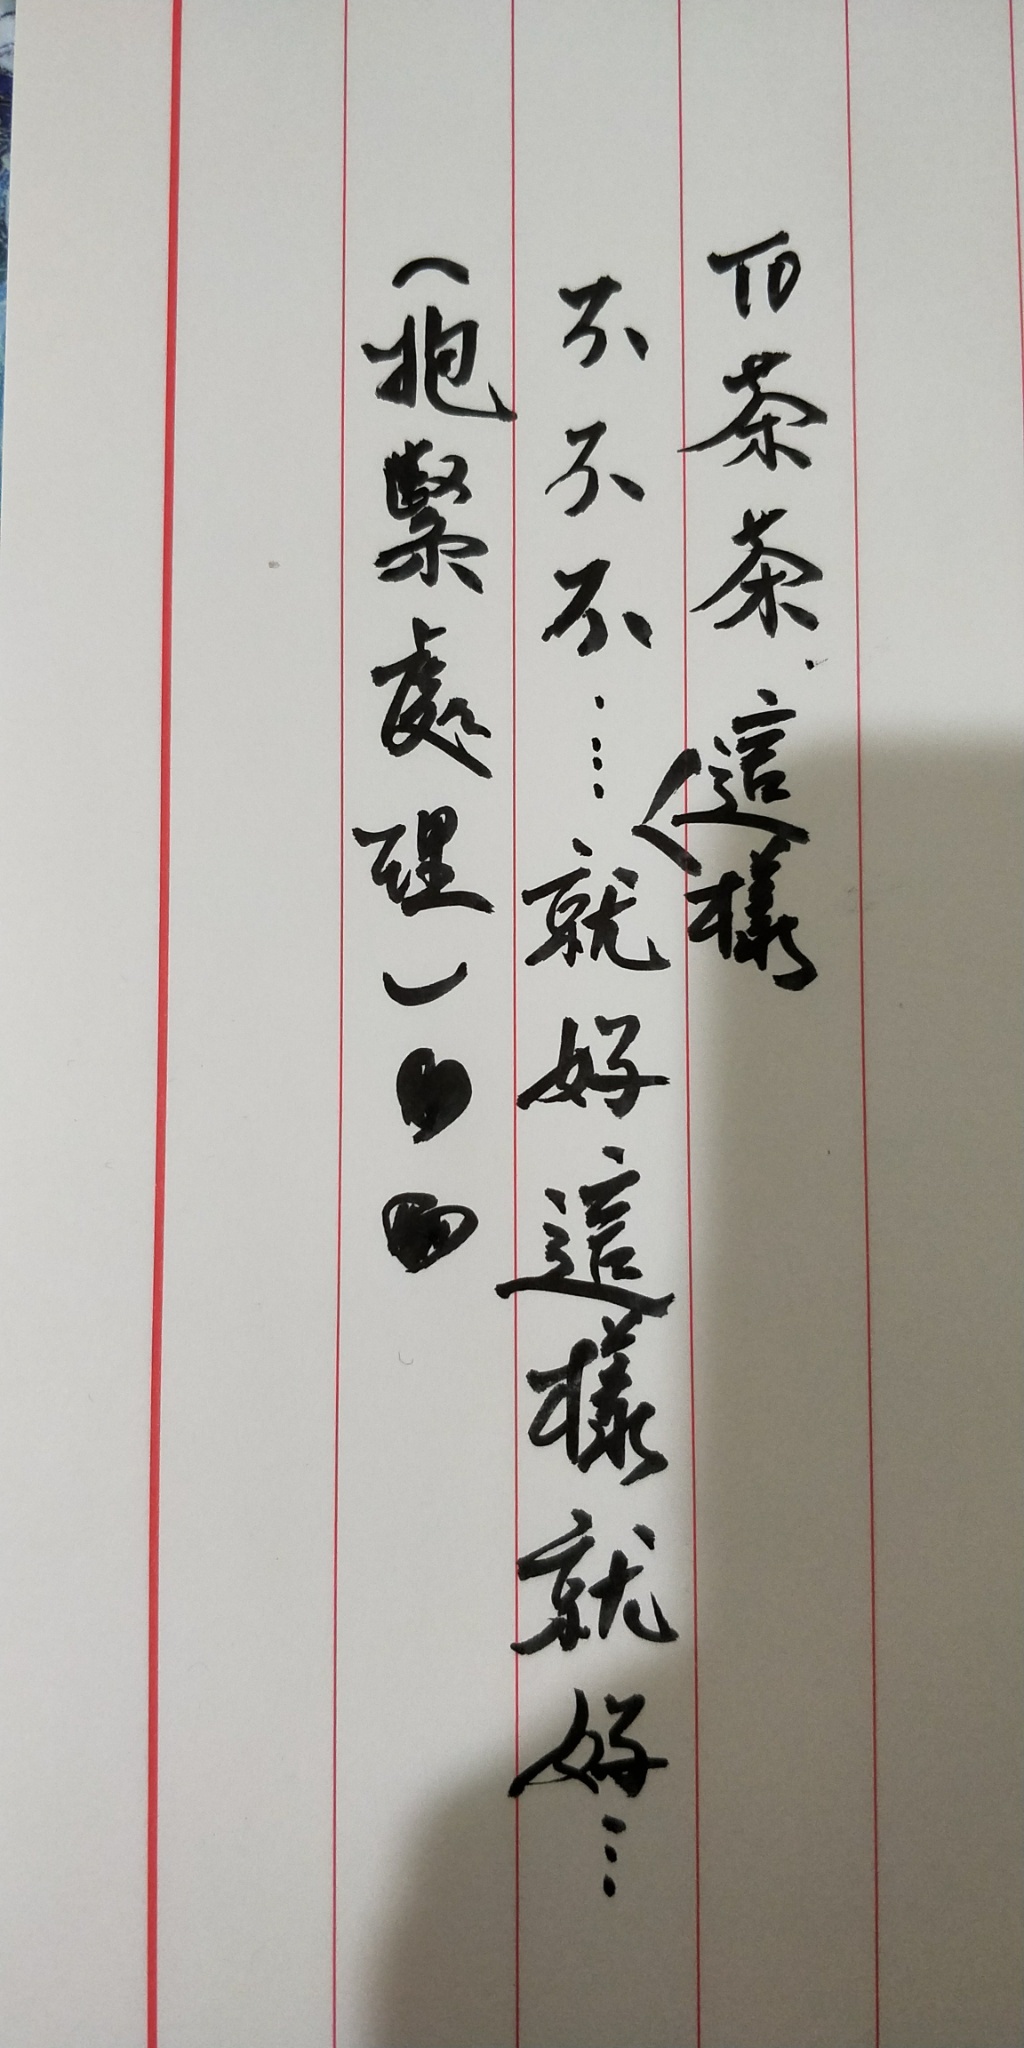 TO 茶茶.
不不不……這樣就好這樣就好…
(抱緊處理)